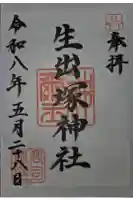 奉拝
生出塚神社
令和八年五月二十八日